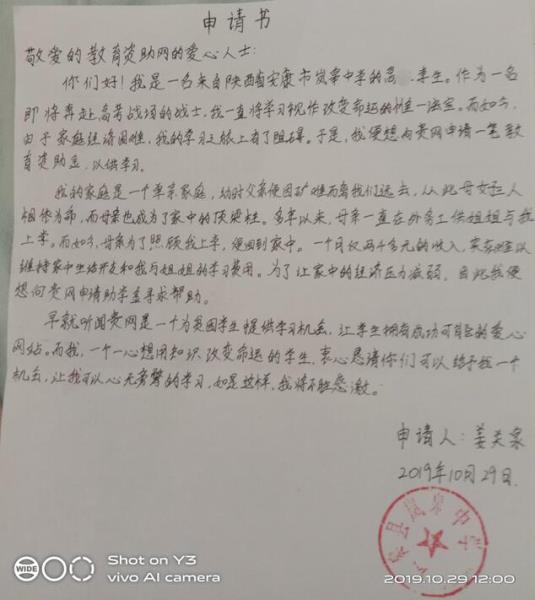 申请书
敬爱的教育资助网的爱心人士：
你们好！我是一名来自陕西省安康市岚皋中学的高 学生。作为一名
即将奔赴高考战场的战士，我一直将学习视作改变命运的唯一法宝。而如今，
由于家庭经济困难，我的学习之旅上有了阻碍。于是，我便想向贵网申请一笔教
育资助金，以供学习。
我的家庭是一个单亲家庭，幼时父亲便因矿难而离我们远去，从此母女三人
相依为命，而母亲也成为了家中的顶梁柱。多年以来，母亲一直在外务工供姐姐与我
上学。而如今，母亲为了照顾我上学，便回到家中。一个月仅两千多元的收入，实在难以
维持家中生活开支和我与姐姐的学习费用。为了让家中的经济压力减弱，因此我便
想向贵网申请助学金寻求帮助。
早就听闻贵网是一个为贫困学生提供学习机会，让学生拥有成功可能的爱心
网站。而我，一个一心想用知识改变命运的学生，衷心恳请你们可以给予我一个
机会，让我可以心无旁骛的学习，如是这样，我将不胜感激。
申请人：姜关泉
2019年10月29日
岚皋中学
WIDE
Shot on Y3
vivo AI camera
2019.10.29 12:00